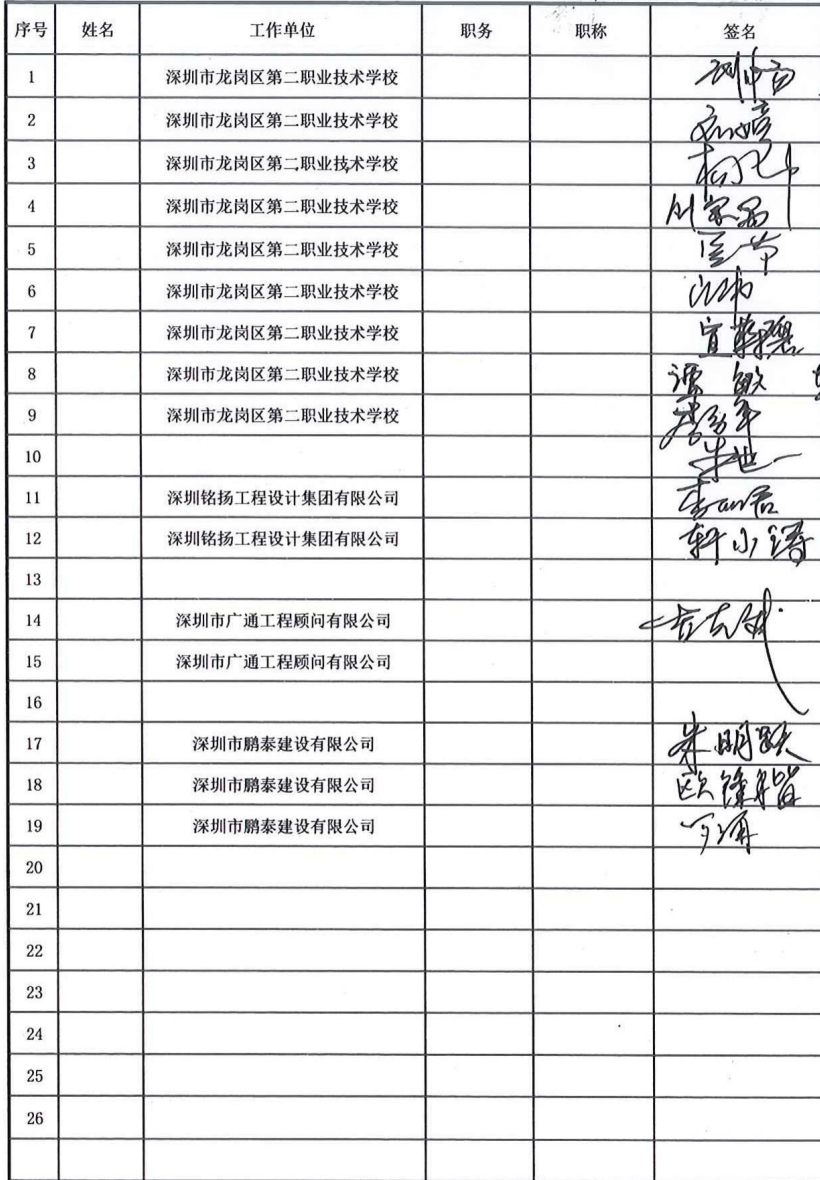 序号 姓名 工作单位 职务 职称 签名
1 深圳市龙岗区第二职业技术学校
2 深圳市龙岗区第二职业技术学校
3 深圳市龙岗区第二职业技术学校
4 深圳市龙岗区第二职业技术学校
5 深圳市龙岗区第二职业技术学校
6 深圳市龙岗区第二职业技术学校
7 深圳市龙岗区第二职业技术学校
8 深圳市龙岗区第二职业技术学校 谭敏
9 深圳市龙岗区第二职业技术学校
10
11 深圳铭扬工程设计集团有限公司
12 深圳铭扬工程设计集团有限公司 轩小涛
13
14 深圳市广通工程顾问有限公司
15 深圳市广通工程顾问有限公司
16
17 深圳市鹏泰建设有限公司 朱明跃
18 深圳市鹏泰建设有限公司
19 深圳市鹏泰建设有限公司
20
21
22
23
24
25
26